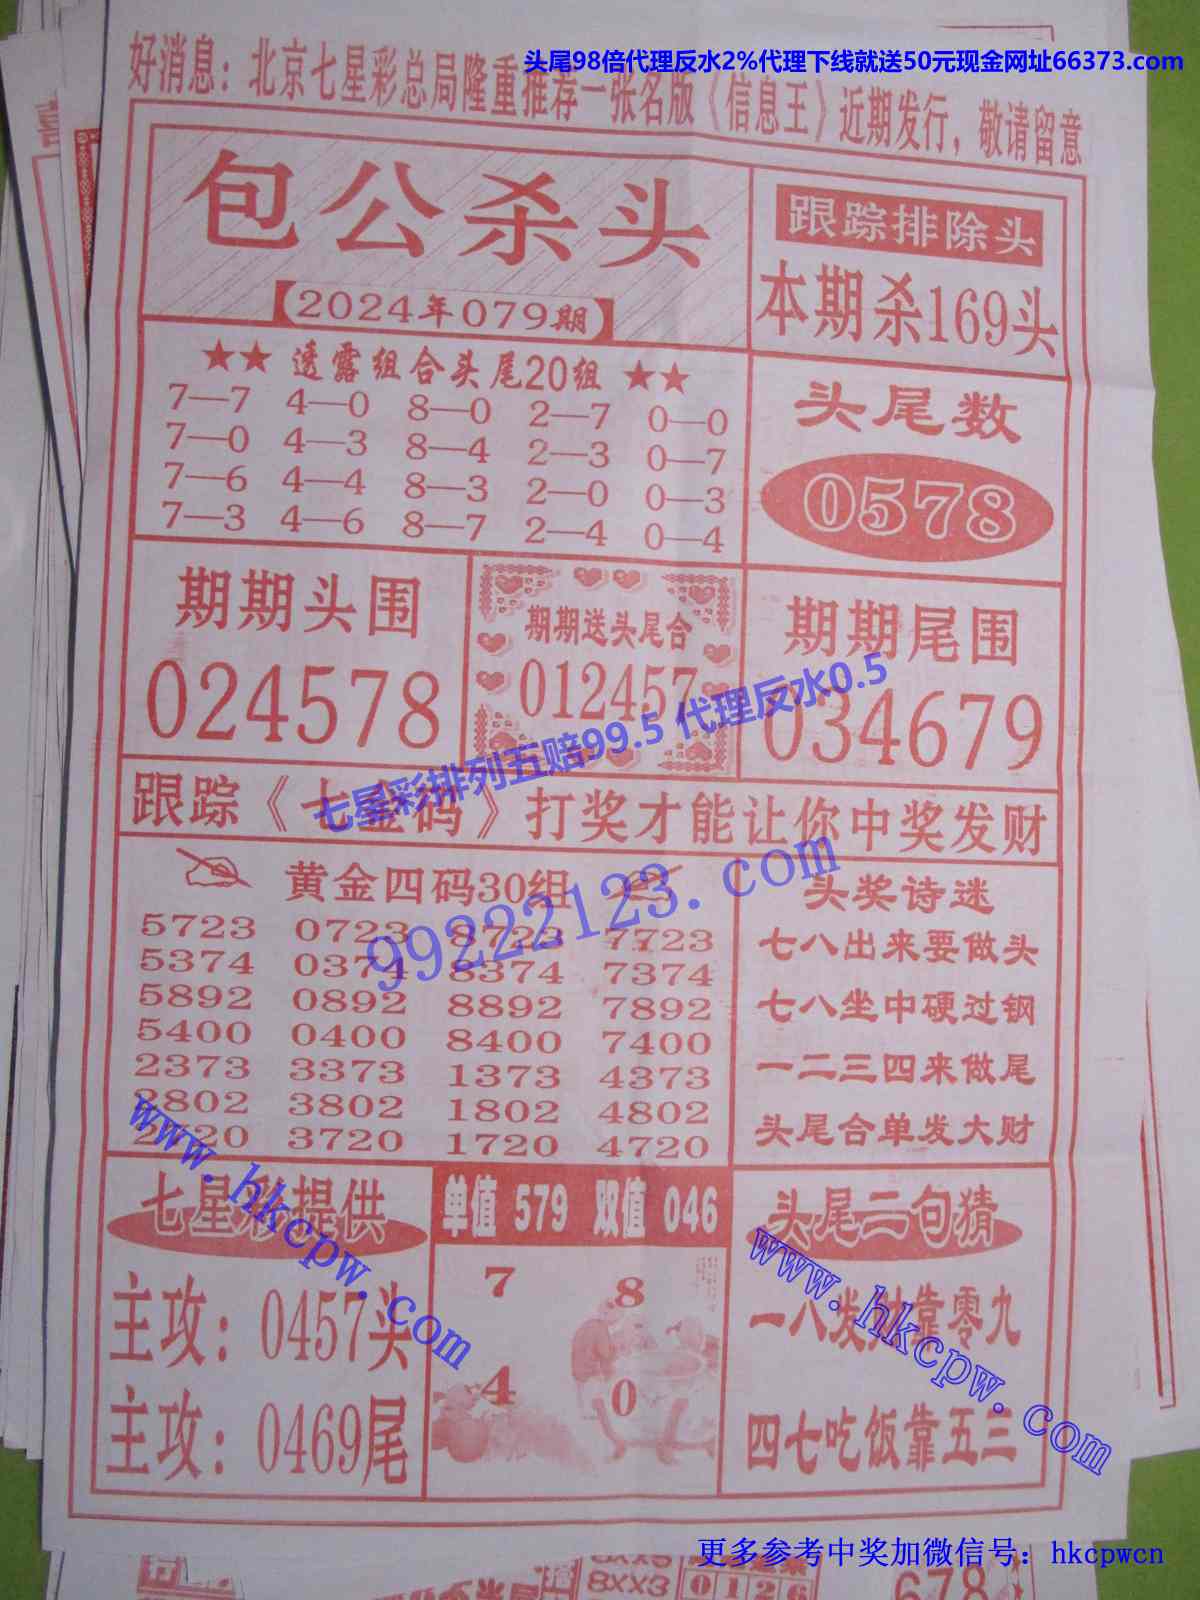 头尾98倍代理反水2%代理下线就送50元现金网址66373.com
好消息：北京七星彩总局隆重推荐一张名版《信息王》近期发行，敬请留意
包公杀头
【2024年079期】
跟踪排除头
本期杀169头
★★ 透露组合头尾20组 ★★
7—7 4—0 8—0 2—7 0—0
7—0 4—3 8—4 2—3 0—7
7—6 4—4 8—3 2—0 0—3
7—3 4—6 8—7 2—4 0—4
头尾数
0578
期期头围
024578
期期送头尾合
012457
期期尾围
034679
七星彩排列五赔99.5 代理反水0.5
跟踪《七金码》打奖才能让你中奖发财
99222123.com
黄金四码30组
5723 0723 8723 7723
5374 0374 8374 7374
5892 0892 8892 7892
5400 0400 8400 7400
2373 3373 1373 4373
2802 3802 1802 4802
3720 1720 4720
头奖诗迷
七八出来要做头
七八坐中硬过钢
一二三四来做尾
头尾合单发大财
www.hkcpw.com
七星彩提供
主攻：0457头
主攻：0469尾
单值 579 双值 046
7 8
4 0
头尾二句猜
一八发财靠零九
四七吃饭靠五三
www.hkcpw.com
更多参考中奖加微信号：hkcpwcn
8XX3
0126
678